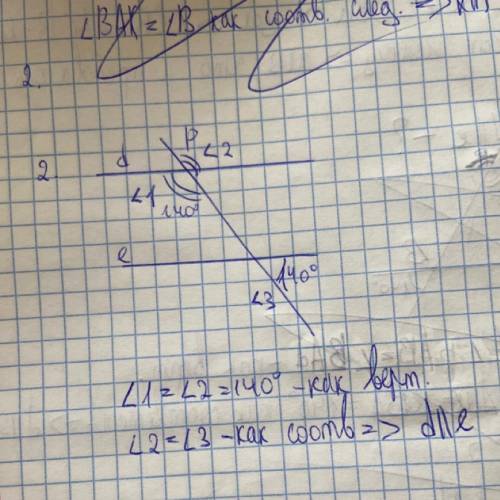 ∠BAK = ∠B как соотв. след. =>
2.
2
p
d
∠2
∠1
140°
e
140°
∠3
∠1=∠2=140° -как верт.
∠2=∠3 -как соотв => d||e